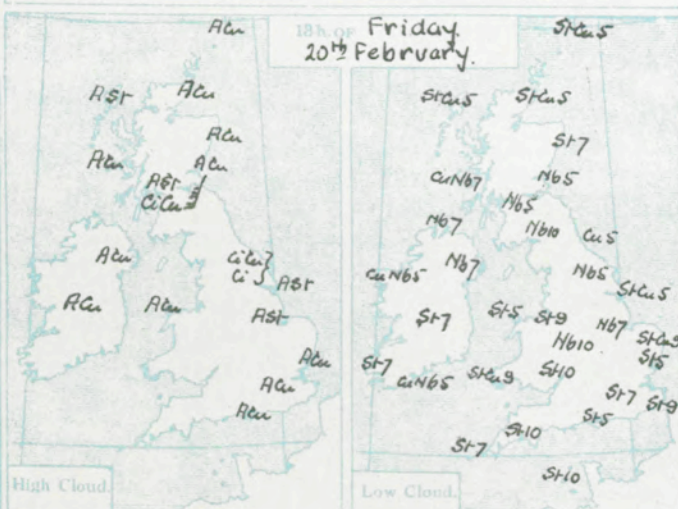 18h. OF Friday
20th February.
ACu
ASt ACu
ACu
ACu ACu
ASt
CiCu
ACu CiCu
Ci ASt
ACu ACu ASt
ACu
ACu
ACu
High Cloud.
StCu5
StCu5 StCu5
St7
CuNb7 Nb5
Nb5
Nb7 Nb10 Cu5
Nb7 Nb5
CuNb5 StCu5
St7 St5 St9 Nb7 StCu9
Nb10 St5
St7 CuNb5 StCu9 St10
St7 St9
St5
St10
St7
St10
Low Cloud.